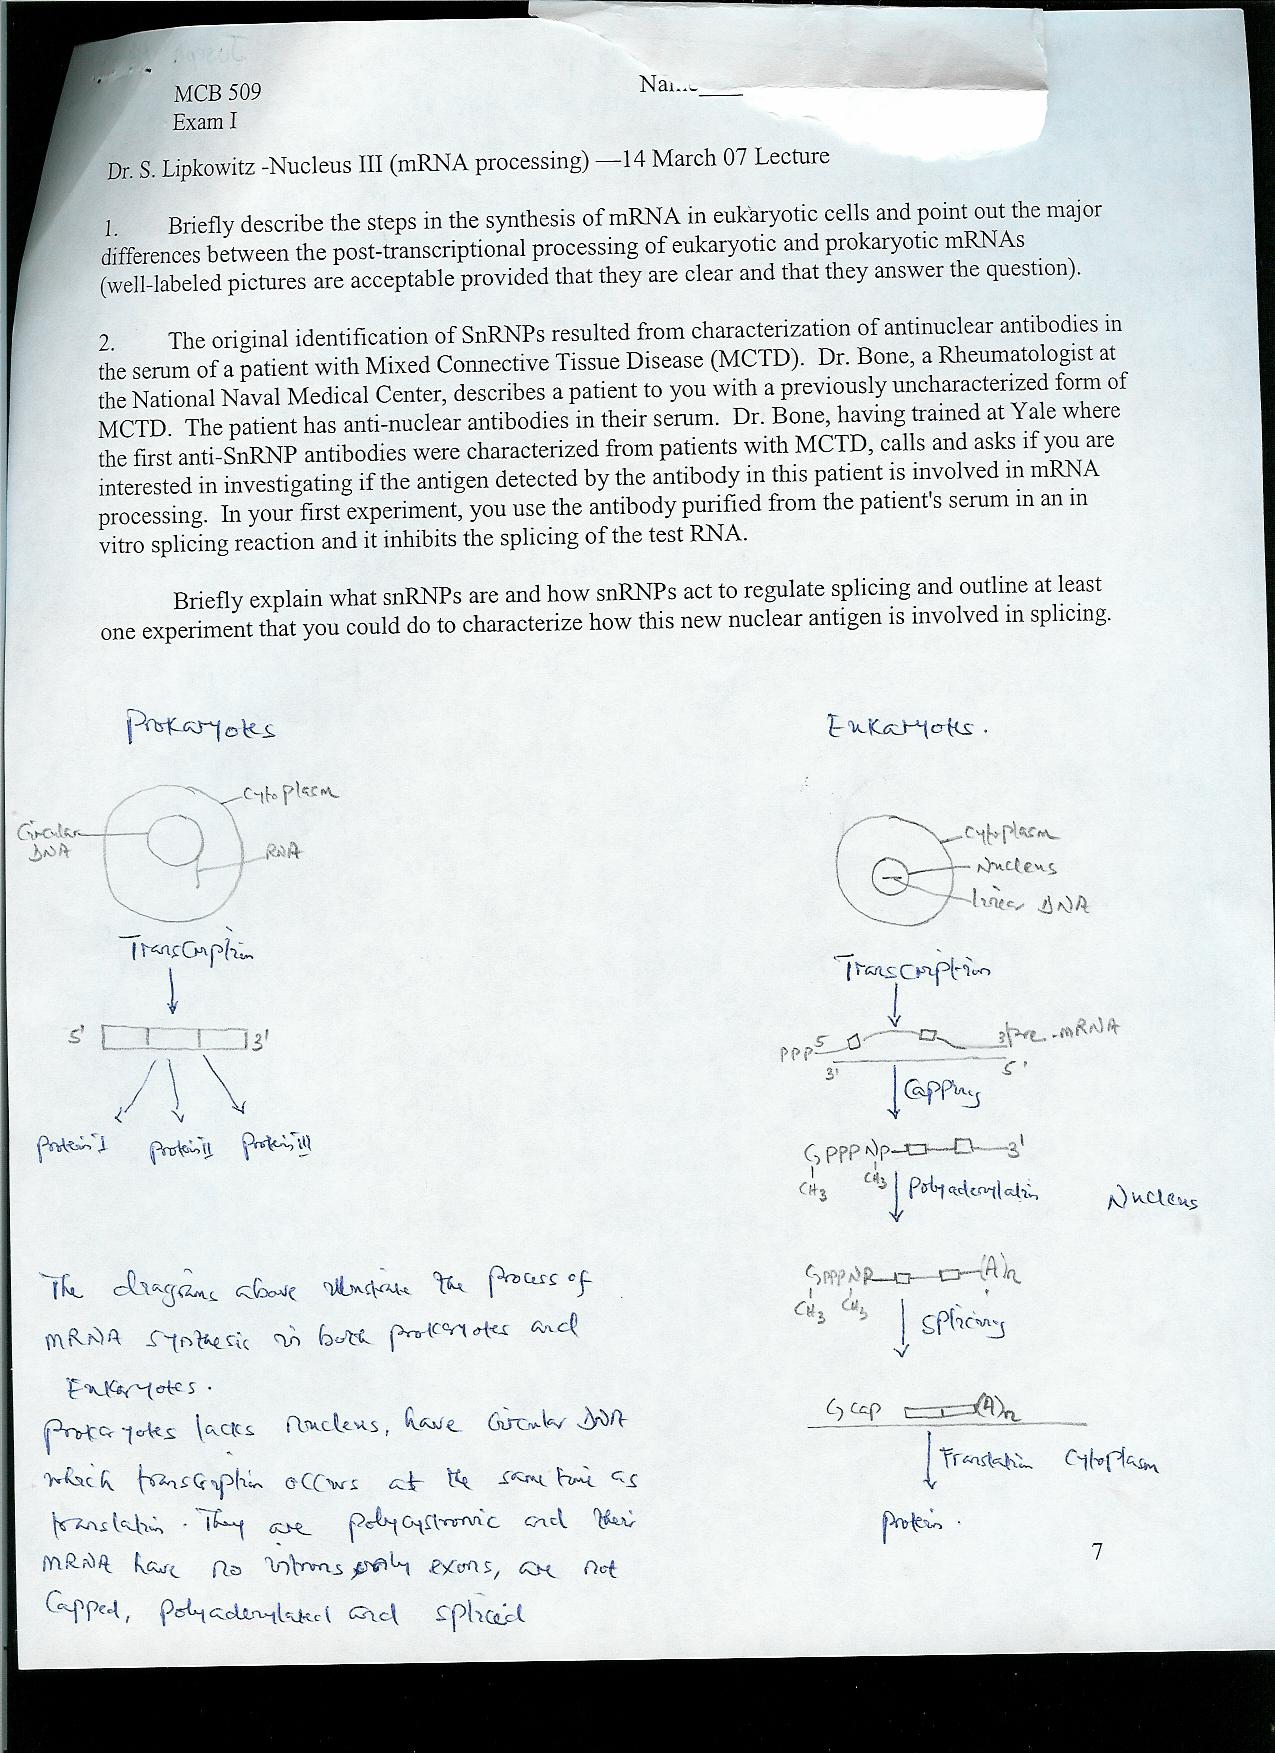 MCB 509
Exam I
Dr. S. Lipkowitz -Nucleus III (mRNA processing) —14 March 07 Lecture
1. Briefly describe the steps in the synthesis of mRNA in eukaryotic cells and point out the major
differences between the post-transcriptional processing of eukaryotic and prokaryotic mRNAs
(well-labeled pictures are acceptable provided that they are clear and that they answer the question).
2. The original identification of SnRNPs resulted from characterization of antinuclear antibodies in
the serum of a patient with Mixed Connective Tissue Disease (MCTD). Dr. Bone, a Rheumatologist at
the National Naval Medical Center, describes a patient to you with a previously uncharacterized form of
MCTD. The patient has anti-nuclear antibodies in their serum. Dr. Bone, having trained at Yale where
the first anti-SnRNP antibodies were characterized from patients with MCTD, calls and asks if you are
interested in investigating if the antigen detected by the antibody in this patient is involved in mRNA
processing. In your first experiment, you use the antibody purified from the patient's serum in an in
vitro splicing reaction and it inhibits the splicing of the test RNA.
Briefly explain what snRNPs are and how snRNPs act to regulate splicing and outline at least
one experiment that you could do to characterize how this new nuclear antigen is involved in splicing.
Prokaryotes
Cytoplasm
Circular
DNA
RNA
Transcription
5' 3'
Protein I Protein II Protein III
The diagrams above illustrate the process of
mRNA synthesis in both prokaryotes and
Eukaryotes.
prokaryotes lacks nucleus, have Circular DNA
which transcription occurs at the same time as
translation. They are polycystronic and their
mRNA have no introns only exons, are not
Capped, polyadenylated and spliced
Eukaryotes.
Cytoplasm
Nucleus
linear DNA
Transcription
PPP5' 3' Pre-mRNA
3' 5'
Capping
GPPPNP 3'
CH3 CH3
Polyadenylation Nucleus
GPPPNP (A)n
CH3 CH3
Splicing
G cap (A)n
Translation Cytoplasm
protein.
7